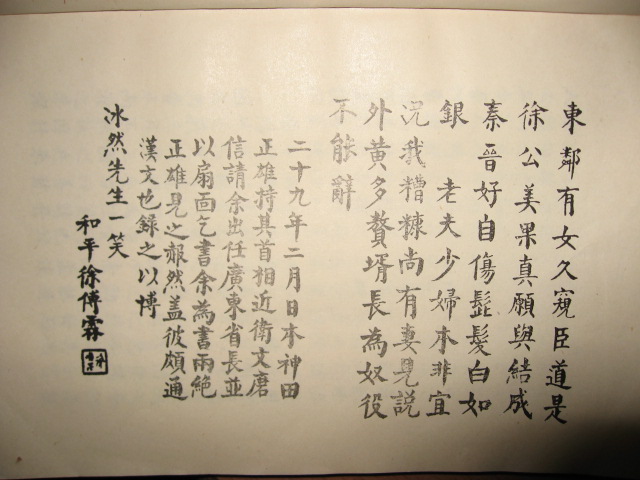 東鄰有女久窺臣道是
徐公美果真願與結成
秦晉好自傷髭髮白如
銀　老夫少婦本非宜
況我糟糠尚有妻見説
外黃多贅壻長為奴役
不能辭
二十九年二月日本神田
正雄持其首相近衛文麿
信請余出任廣東省長並
以扇面乞書余為書兩絶
正雄見之赧然盖彼頗通
漢文也録之以博
冰然先生一笑
和平徐傅霖